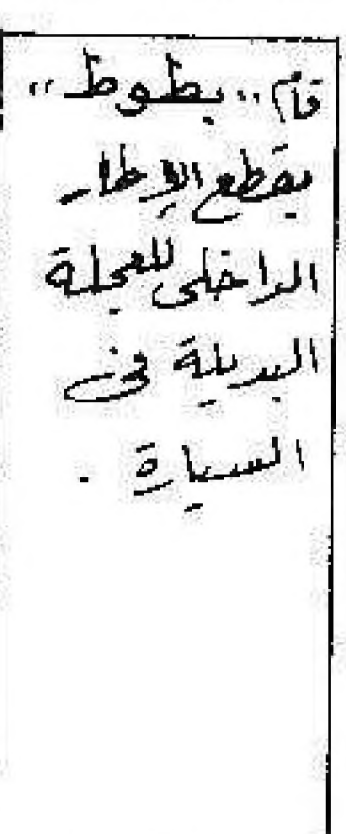 قام "بطوط"
بقطع الإطار
الداخلى للعجلة
البديلة فى
السيارة .